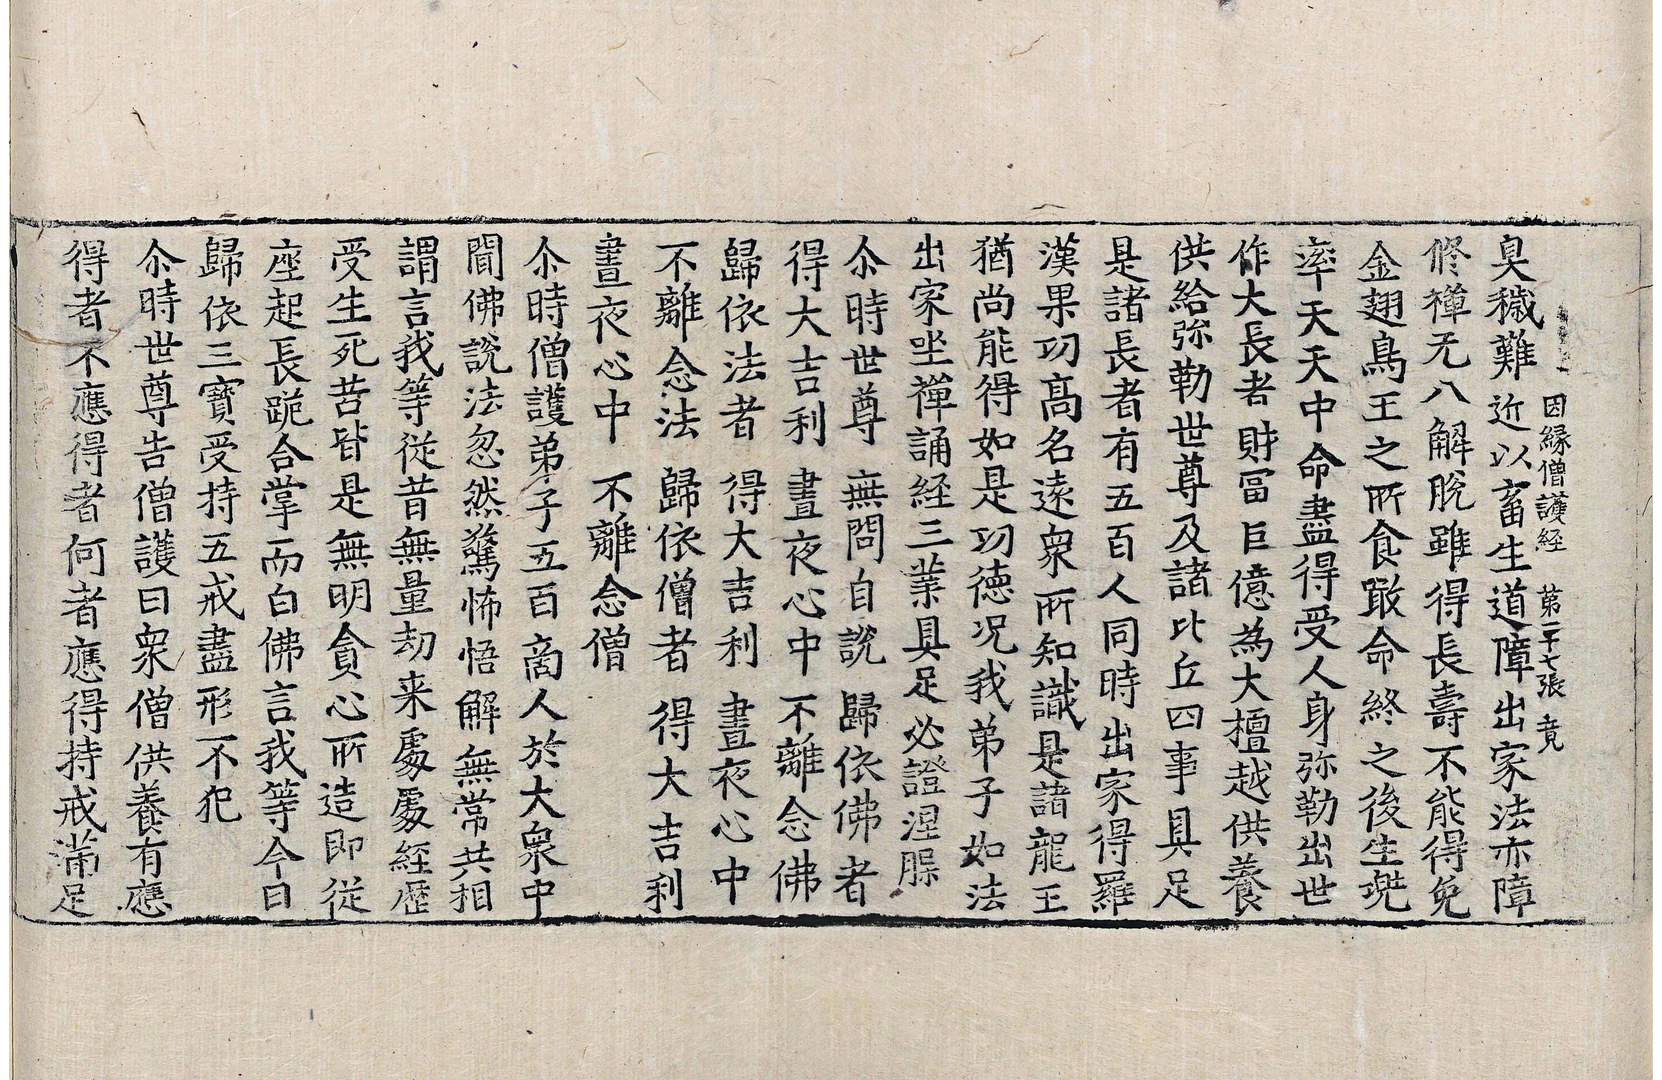 因縁僧護経 第二十七張 竟
臭穢難近以畜生道障出家法亦障
修禪无八解脫雖得長壽不能得免
金翅鳥王之所食噉命終之後生兜
率天天中命盡得受人身弥勒出世
作大長者財冨巨億為大檀越供養
供給弥勒世尊及諸比丘四事具足
是諸長者有五百人同時出家得羅
漢果功髙名遠衆所知識是諸龍王
猶尚能得如是功徳况我弟子如法
出家坐禪誦経三業具足必證涅槃
尒時世尊 無問自說 歸依佛者
得大吉利 晝夜心中 不離念佛
歸依法者 得大吉利 晝夜心中
不離念法 歸依僧者 得大吉利
晝夜心中 不離念僧
尒時僧護弟子五百啇人於大衆中
聞佛說法忽然驚怖悟解無常共相
謂言我等從昔無量劫来處處経歷
受生死苦皆是無明貪心所造即從
座起長跪合掌而白佛言我等今日
歸依三寶受持五戒盡形不犯
尒時世尊告僧護曰衆僧供養有應
得者不應得者何者應得持戒滿足